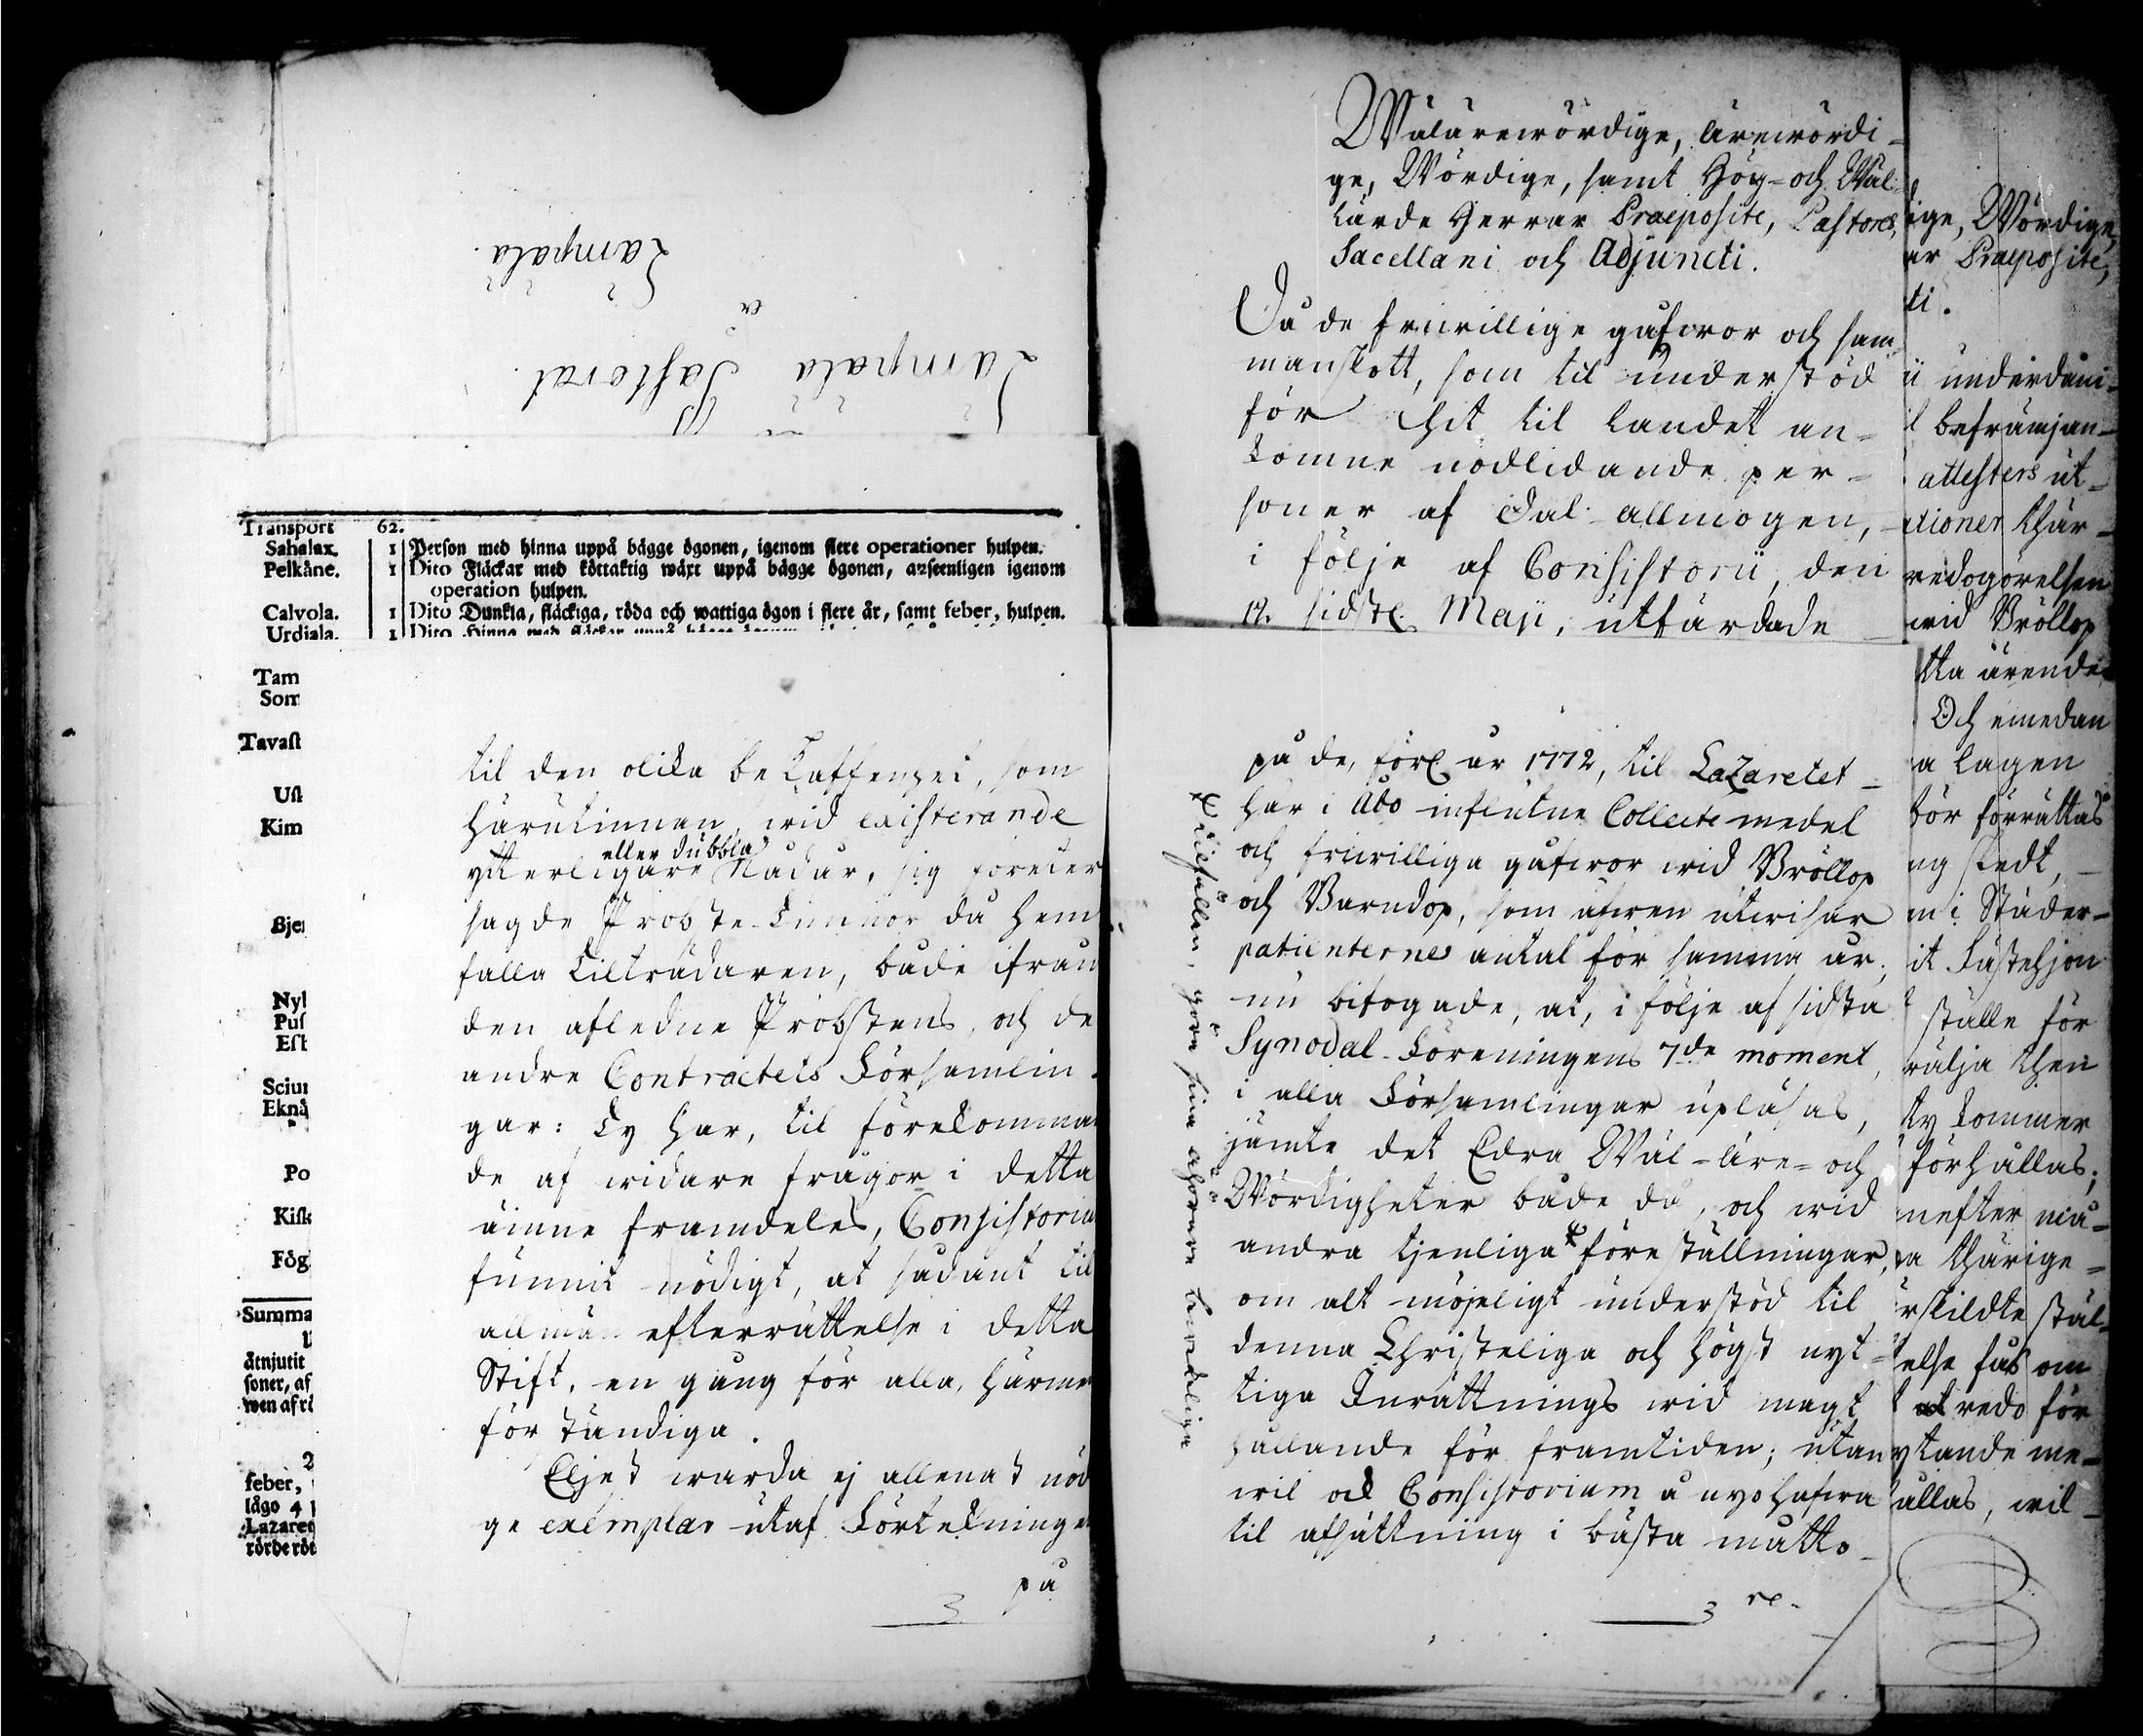 Lämpälä Pastorat.
ex
Lämpälä.
Transport 62.
Sahalax. 1 Person med hinna uppå bägge ögonen, igenom flere operationer hulpen.
Pelkäne. 1 Dito Fläckar med köttaktig wäxt uppå bägge ögonen, anseenligen igenom
operation hulpen.
Calvola. 1 Dito Dunkla, fläckiga, röda och wattiga ögon i flere år, samt feber, hulpen.
Urdiala. 1 Dito Hinna med fläckar uppå bägge ögonen
Tam
Som
Tavast
Ust
Kim
Bje
Nyl
Puf
Esb
Sciun
Eknä
Po
Kisk
Fög
Summa
åtnjutit
soner, af
wen af
2
feber,
lågo 4
Lazaret
rörde röt
til den olika beskaffenhet, som
härutinnan, wid existerande
eller dubbla
ytterligare Nådår, sig företer
sagde Probste-Tunnor då hem
falla tilträdaren, både ifrån
den afledne Probstens, och de
andre Contractets Församlin-
gar: Ty har, til förekomman
de af widare frågor i detta
ämne framdeles, Consistorium
funnit nödigt, at sådant til
allmän efterrättelse i detta
Stift, en gång för alla, härme
förständiga.
Eljest warda ej allenast nöd
ge exemplar utaf Förtekninge
på
3
Wälärewördige, ärewördi-
ge, Wördige, samt Hög- och Wäl-
lärde Herrar Praepositi, Pastores,
Sacellani och Adjuncti.
Då de friwillige gåfwor och sam-
manskott, som til understöd
för hit til landet an-
komne nödlidande per-
soner af Dal-allmogen,
i följe af Consistorii, den
12. sidstl. Maji, utfärdade
på de, förl. år 1772, til Lazaretet
här i Åbo influtne Collecte medel
och friwilliga gåfwor wid Bröllop
och Barndop, som äfwen utwisar
patienternes antal för samma år,
nu bifogade, at, i följe af sidsta
Synodal-Föreningens 7de moment,
i alla Församlingar upläsas,
jämte det Edra Wäl-Äre- och
Wördigheter både då, och wid
andra tjenliga föreställningar,
om alt möjeligt understöd til
denna Christeliga och högst nyt-
tiga Inrättnings wid magt
hållande för framtiden; utan
wil ock Consistorium å nyo hafwa
til afsättning i bästa matto
3 re-
tilfällen, göra sina åhörare bewekliga
ige, Wördige,
ar Praepositi,
ti.
ii underdåni-
l befrämjan-
attesters ut-
ctioner thär-
redogörelsen
wid Bröllop
tta ärende
Och emedan
a lagen
bör förrättas
ng skedt,
m i Städer-
it Fästehjon
ställe för
wälja then
ty kommer
förhållas;
nefter må-
a thärige-
rskildte stäl-
else fås om
t redo för
ytande me-
ållas, wil